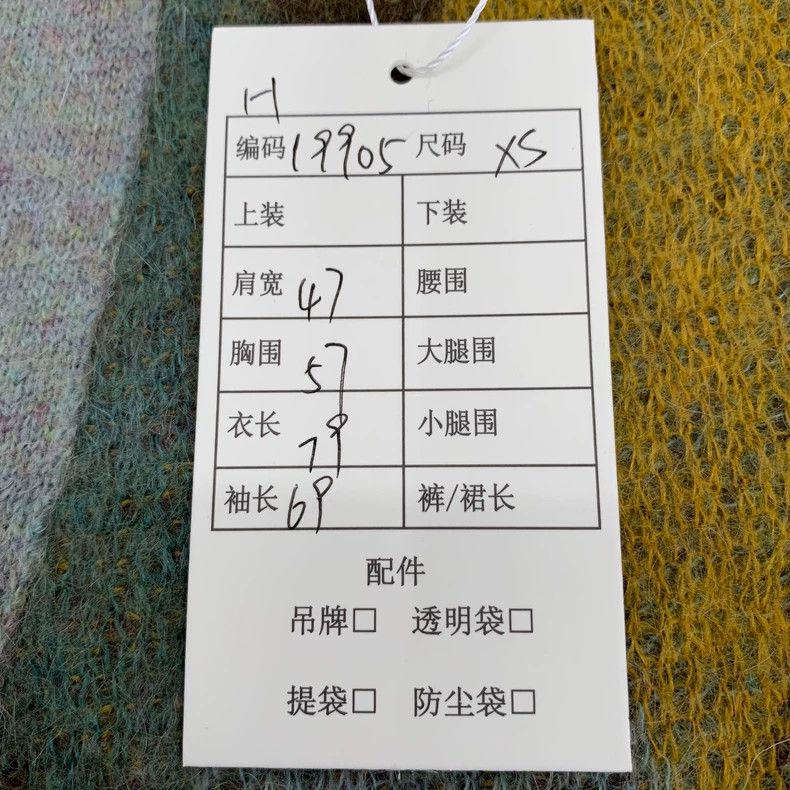 H
编码 19905 尺码 XS
上装 下装
肩宽 47 腰围
胸围 57 大腿围
衣长 79 小腿围
袖长 69 裤/裙长
配件
吊牌□ 透明袋□
提袋□ 防尘袋□